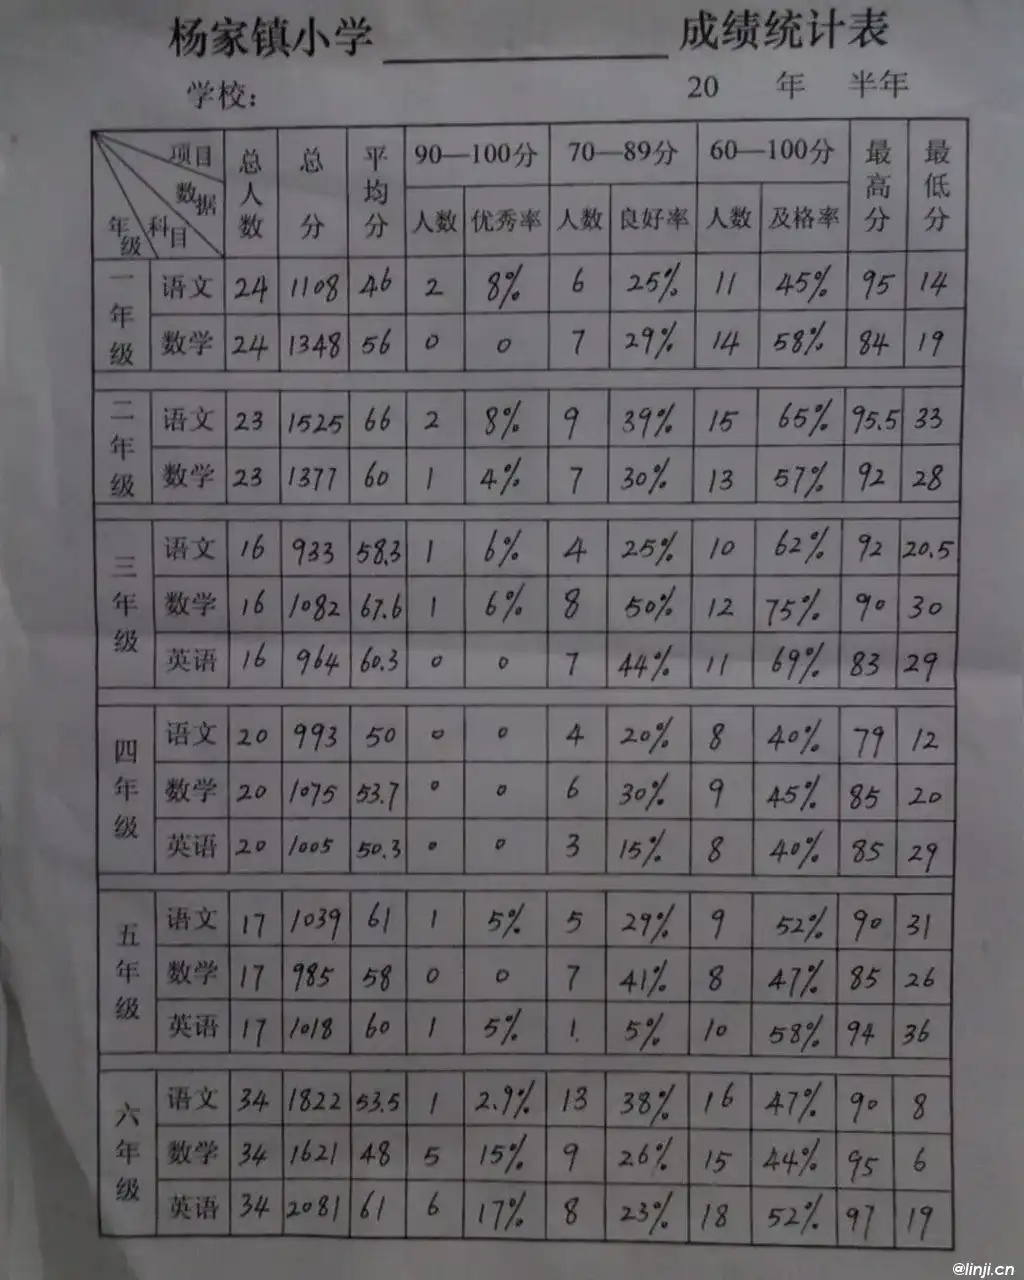 杨家镇小学 成绩统计表
学校： 20 年 半年
项目 数据 科目 年级 总人数 总分 平均分 90—100分 70—89分 60—100分 最高分 最低分
人数 优秀率 人数 良好率 人数 及格率
一年级
语文 24 1108 46 2 8% 6 25% 11 45% 95 14
数学 24 1348 56 0 0 7 29% 14 58% 84 19
二年级
语文 23 1525 66 2 8% 9 39% 15 65% 95.5 33
数学 23 1377 60 1 4% 7 30% 13 57% 92 28
三年级
语文 16 933 58.3 1 6% 4 25% 10 62% 92 20.5
数学 16 1082 67.6 1 6% 8 50% 12 75% 90 30
英语 16 964 60.3 0 0 7 44% 11 69% 83 29
四年级
语文 20 993 50 0 0 4 20% 8 40% 79 12
数学 20 1075 53.7 0 0 6 30% 9 45% 85 20
英语 20 1005 50.3 0 0 3 15% 8 40% 85 29
五年级
语文 17 1039 61 1 5% 5 29% 9 52% 90 31
数学 17 985 58 0 0 7 41% 8 47% 85 26
英语 17 1018 60 1 5% 1 5% 10 58% 94 36
六年级
语文 34 1822 53.5 1 2.9% 13 38% 16 47% 90 8
数学 34 1621 48 5 15% 9 26% 15 44% 95 6
英语 34 2081 61 6 17% 8 23% 18 52% 97 19
@linji.cn